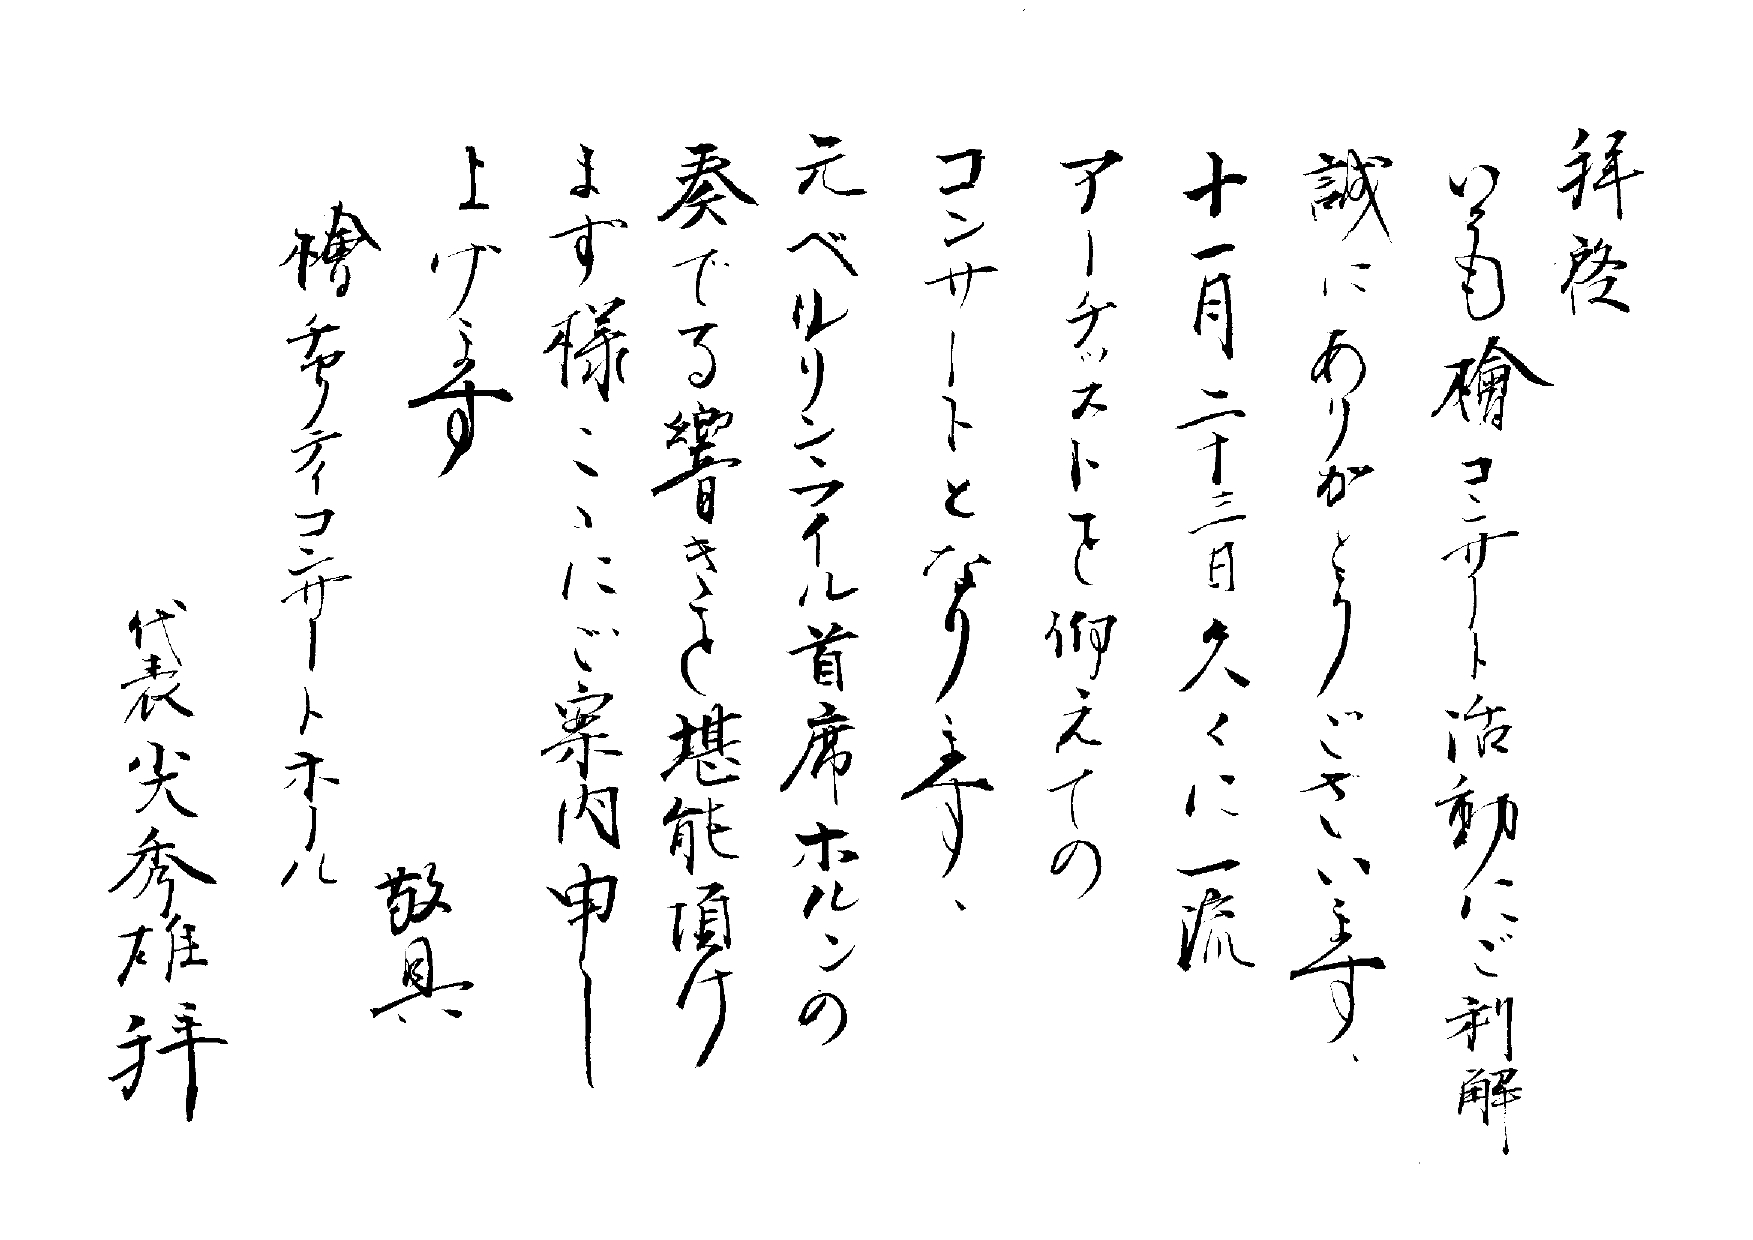 拝啓
いつも檜コンサート活動にご利解
誠にありがとうございます、
十一月二十三日久くに一流
アーチストを仰えての
コンサートとなります、
元ベルリンフイル首席ホルンの
奏でる響きを堪能頂け
ます様ここにご案内申し
上げます
敬具
檜チャリティコンサートホール
代表 尖秀雄 拝